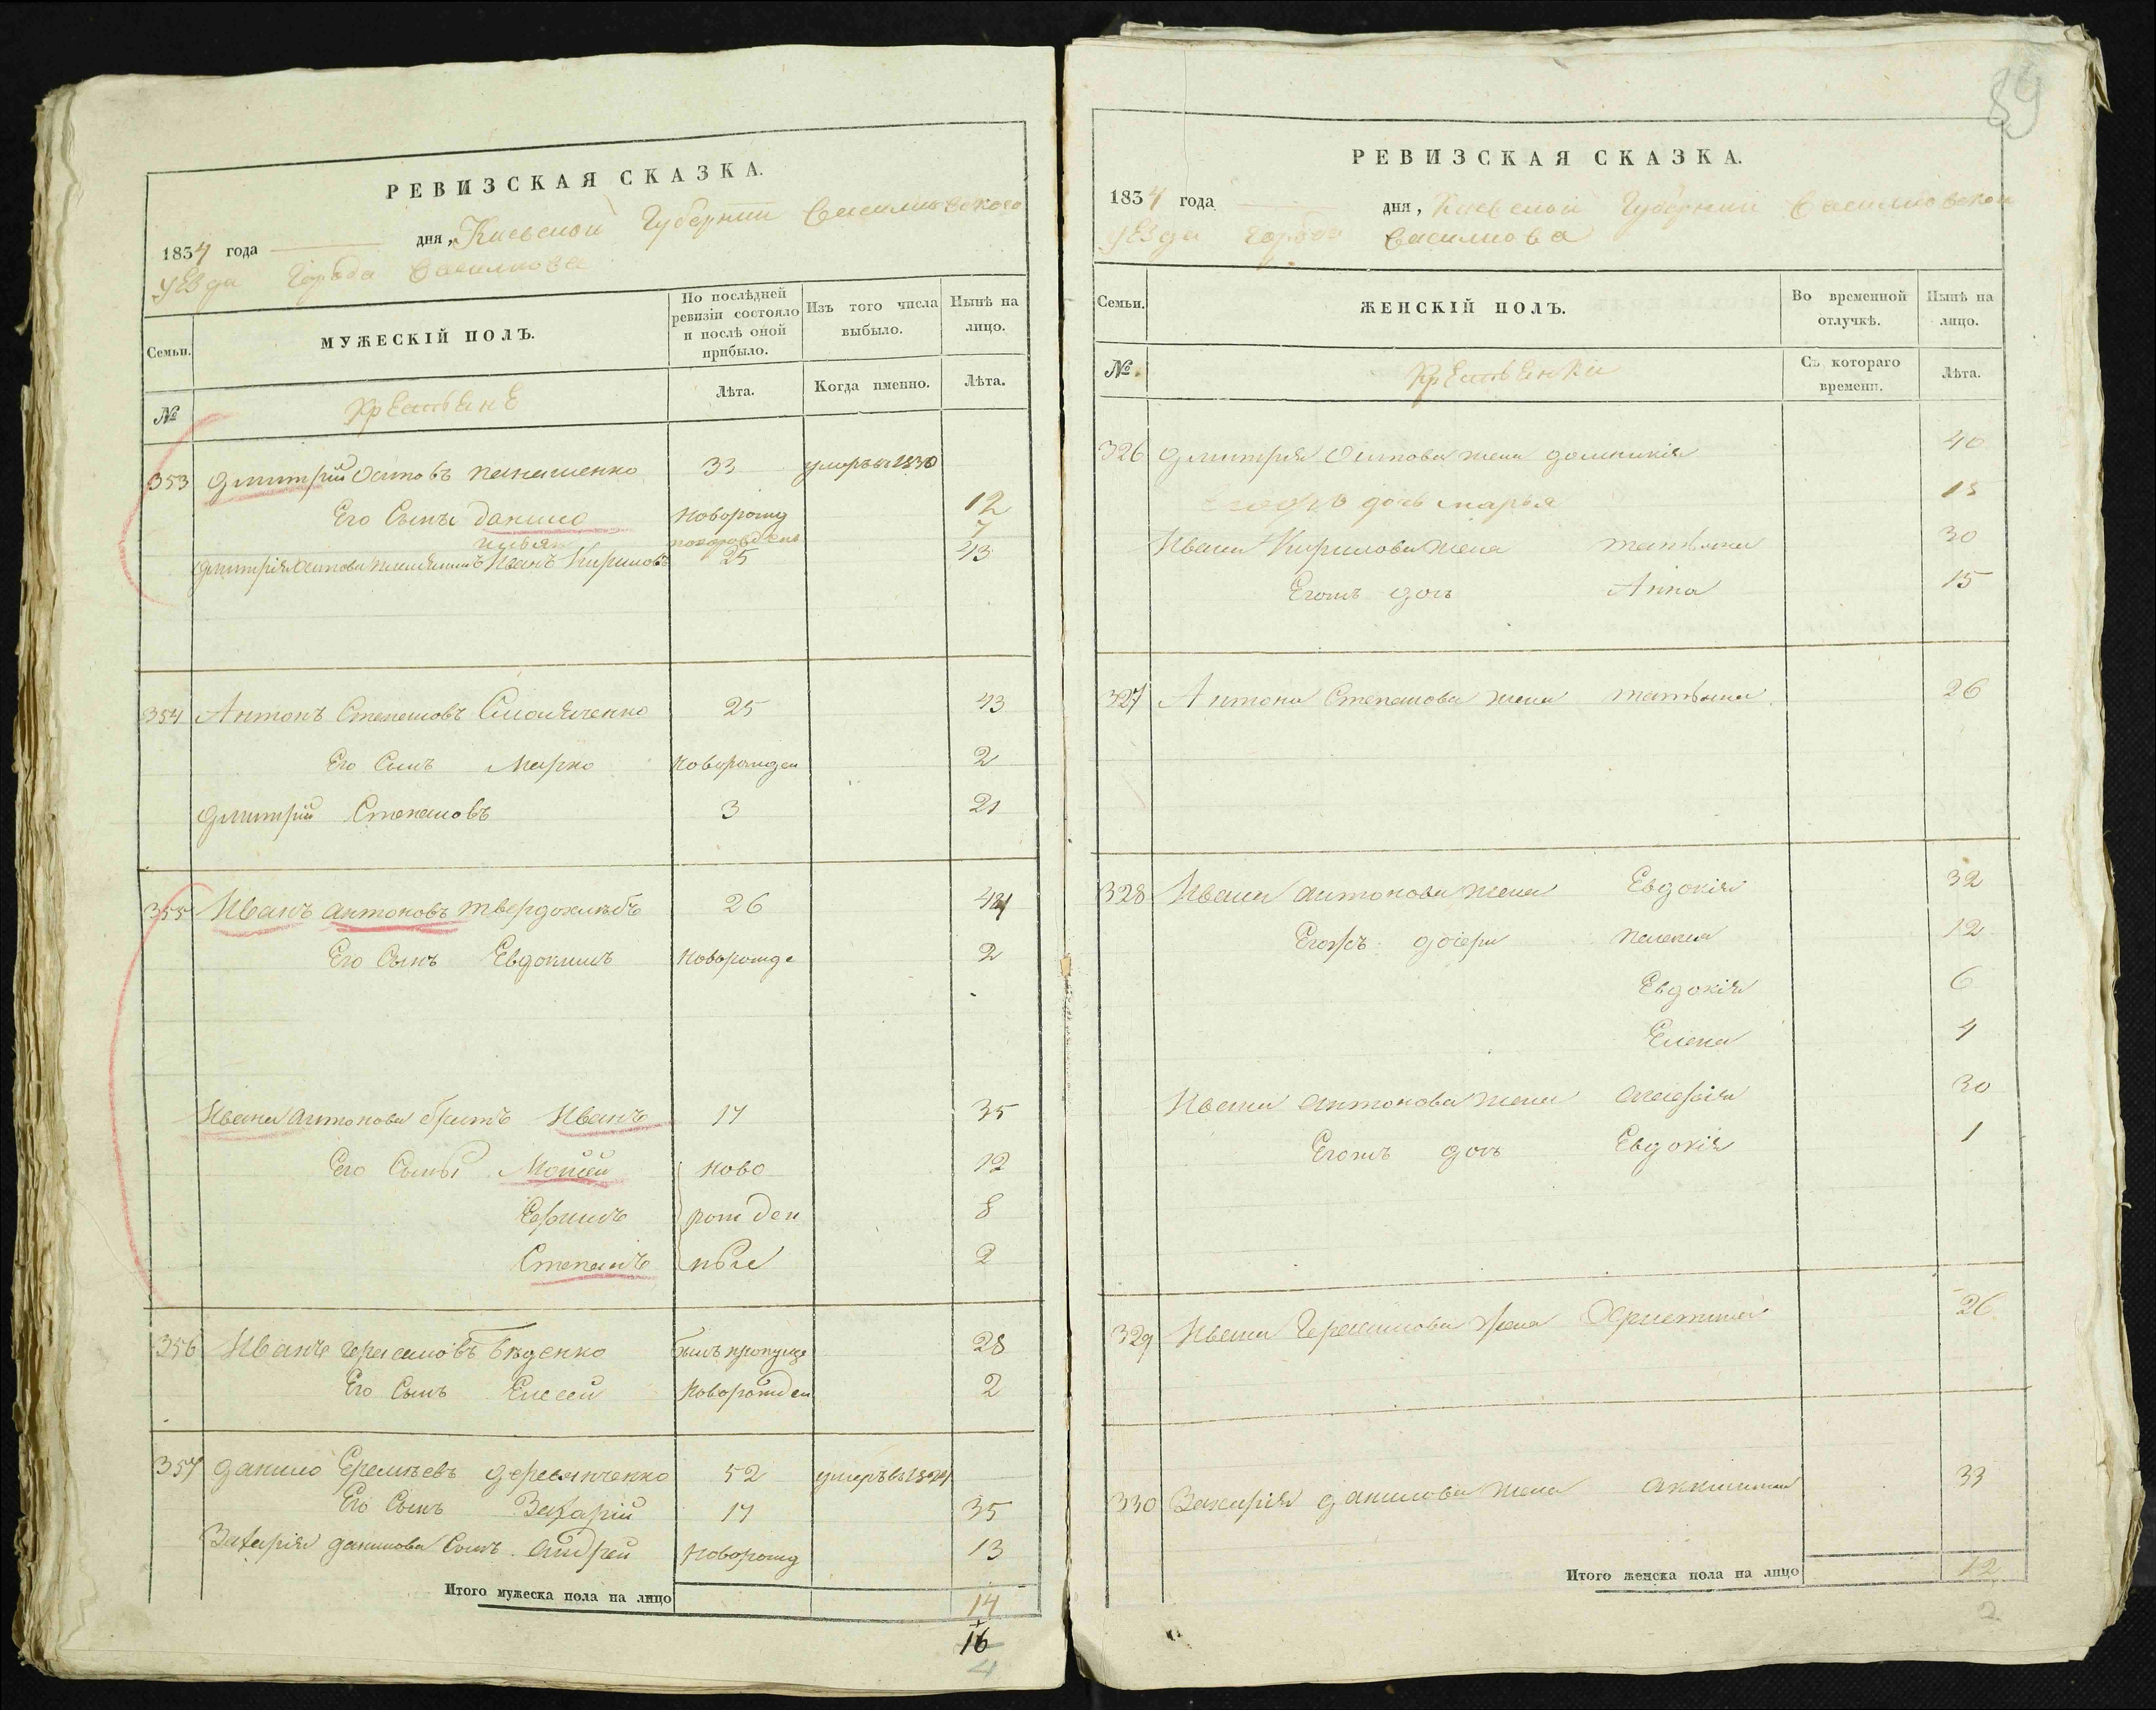 РЕВИЗСКАЯ СКАЗКА.
1834 года дня, Киевской Губернии Василковского
уезда города Василкова
Семьи.
МУЖЕСКІЙ ПОЛЪ.
По послѣдней ревизіи состояло и послѣ оной прибыло.
Изъ того числа выбыло.
Нынѣ на лицо.
№
Крестьяне
Лѣта.
Когда именно.
Лѣта.
353 Дмитрий Осиповъ Панашенко 33 умеръ въ 1830
Его Сынъ Данило новорожд 12
7
Дмитрія Осипова племянникъ Иванъ Кириловъ 25 43
354 Антонъ Степановъ 25 43
Его Сынъ Марко новорожден 2
Дмитрій Степановъ 3 21
355 Иванъ Антоновъ Твердохлѣбъ 26 44
Его Сынъ Евдокимъ новорожде 2
Ивана Антонова братъ Иванъ 17 35
Его Сыны Мойсей ново 12
Ефимъ рожден 8
Степанъ ные 2
356 Иванъ Герасимовъ Бѣденко былъ пропуще 28
Его Сынъ Елисей новорожден 2
357 Данило Еремѣевъ Деревянченко 52 умеръ въ 1824
Его Сынъ Захарій 17 35
Захарія Данилова Сынъ Андрей новорожд 13
Итого мужеска пола на лицо 14
16
4
59
РЕВИЗСКАЯ СКАЗКА.
1834 года дня, Киевской Губернии Василковского
уезда города Василкова
Семьи.
ЖЕНСКІЙ ПОЛЪ.
Во временной отлучкѣ.
Нынѣ на лицо.
№
Крестьянки
Съ котораго времени.
Лѣта.
326 Дмитрія Осипова жена Домникія 40
Егожъ дочь Марья 15
Ивана Кирилова жена Татьяна 30
Егожъ дочь Анна 15
327 Антона Степанова жена Татьяна 26
328 Ивана Антонова жена Евдокія 32
Егожъ дочери Пелагея 12
Евдокія 6
Елена 4
Ивана Антонова жена 30
Егожъ дочь Евдокія 1
329 Ивана Герасимова жена Христина 26
330 Захарія Данилова жена 33
Итого женска пола на лицо 12
2